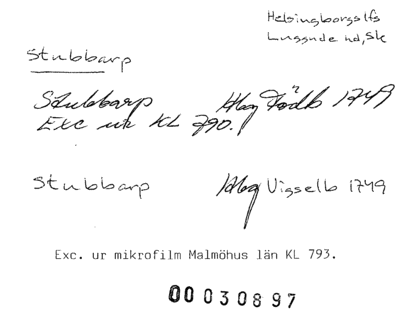 Helsingborgs lfs
Luggude hd, Sk
Stubbarp
Stubbarp Hbg Födlb 1749
Exc ur KL 790.
Stubbarp Hbg Vigsellb 1749
Exc. ur mikrofilm Malmöhus län KL 793.
00030897